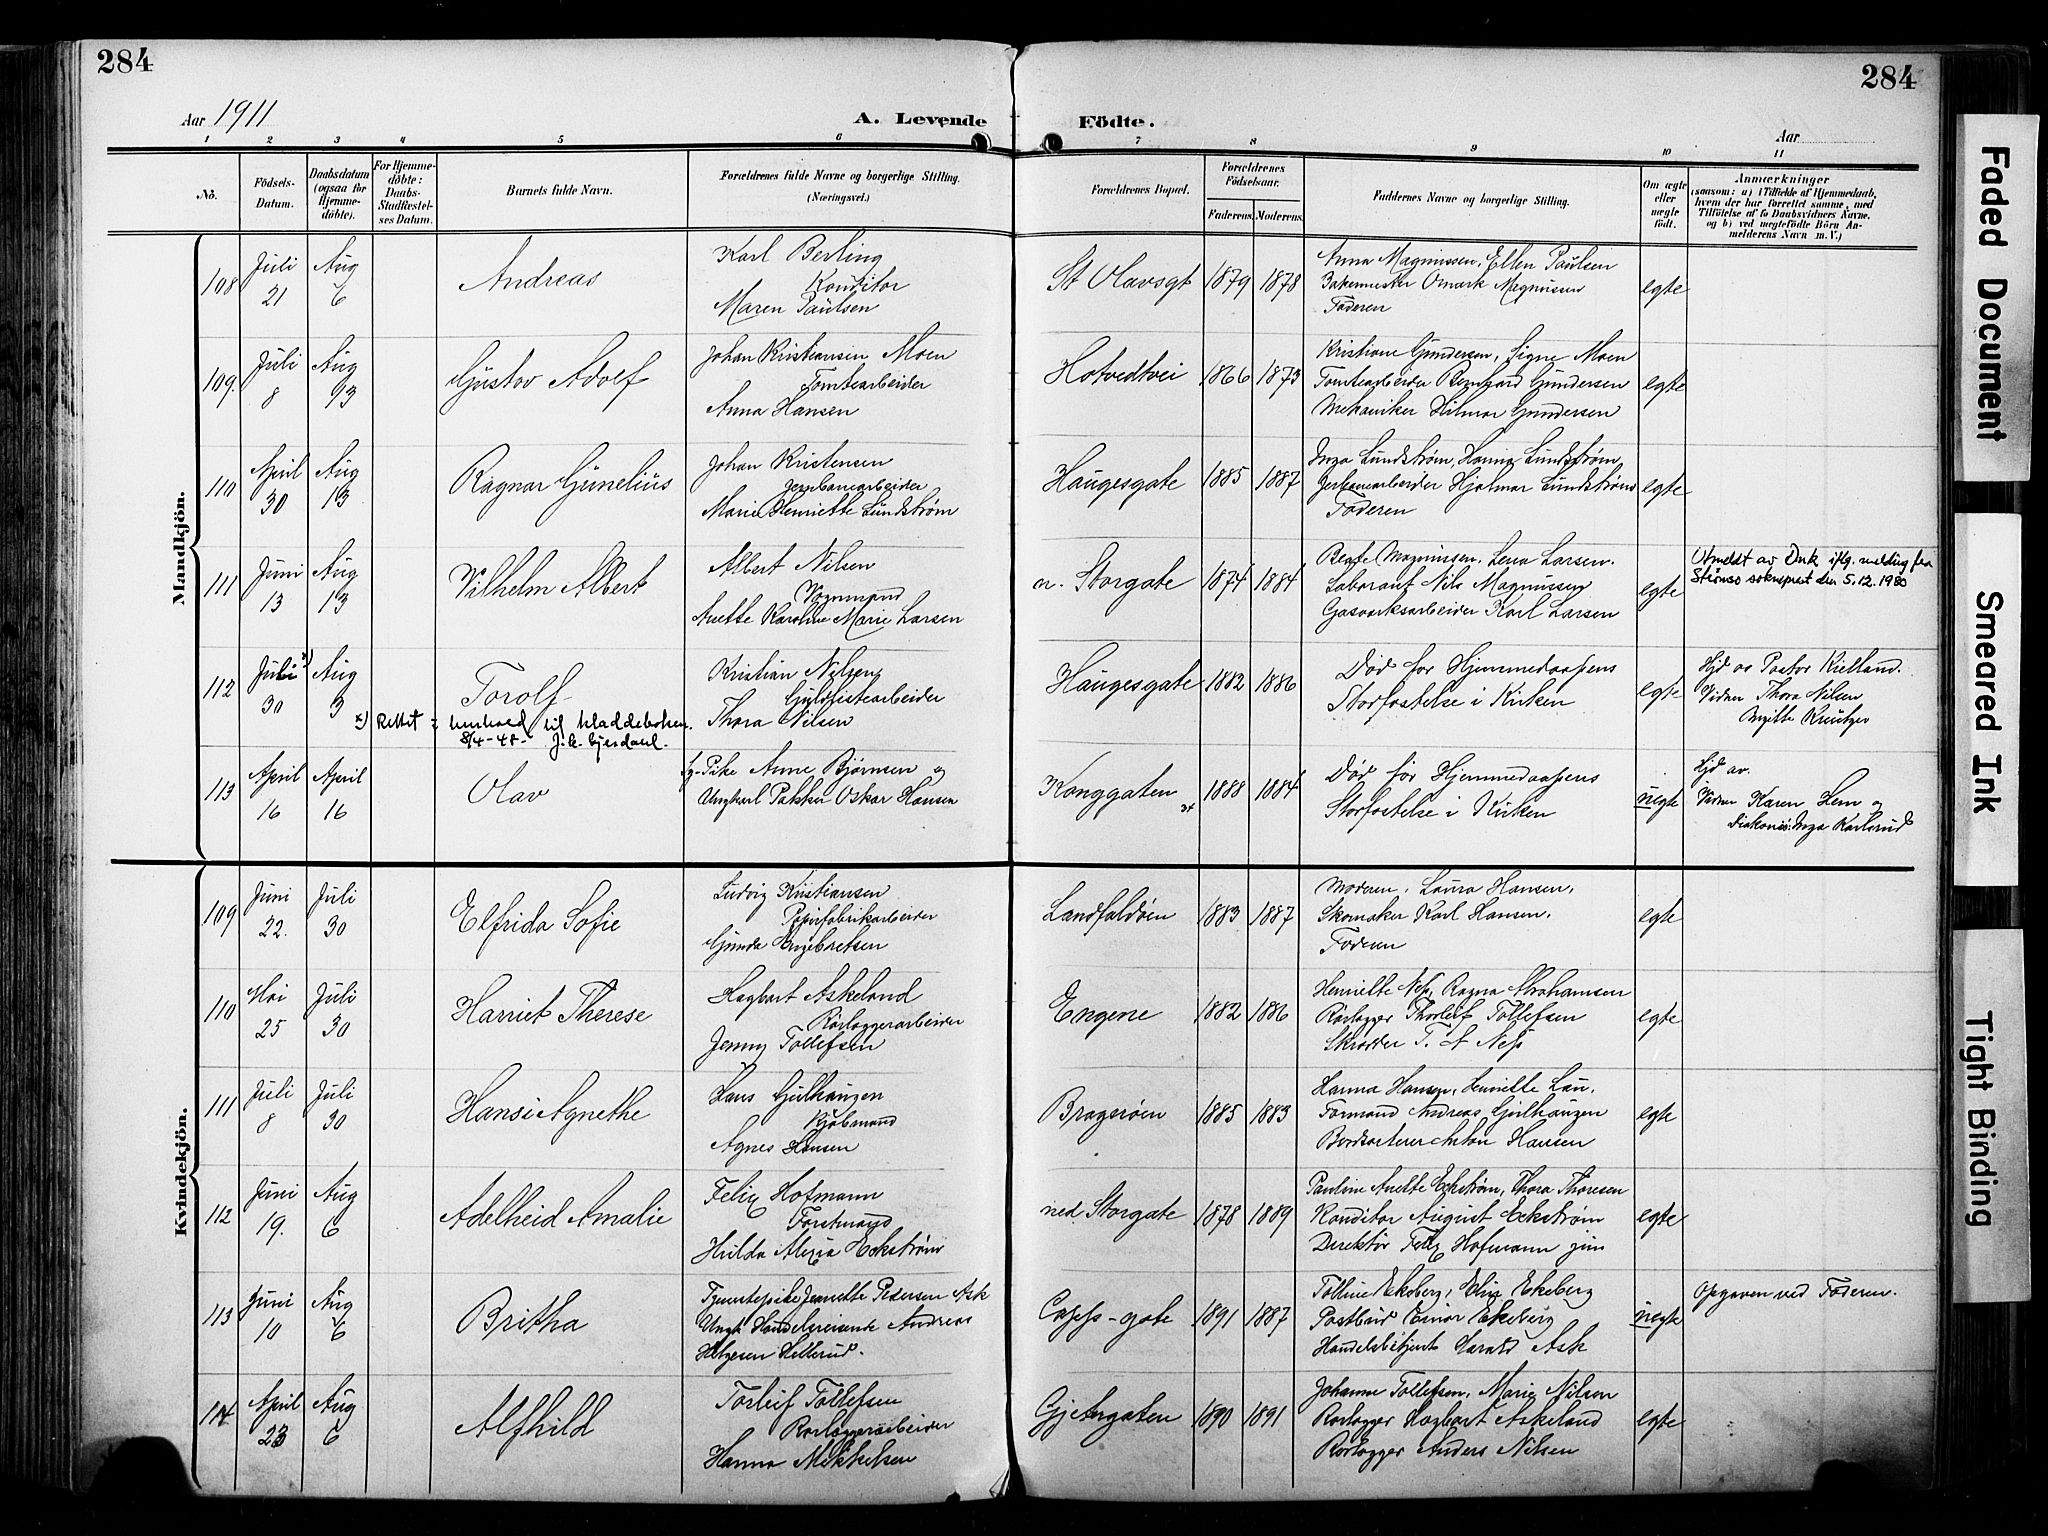 284
284
Aar 1911
A. Levende Födte.
Aar
1 2 3 4 5 6 7 8 9 10 11
No.
Födsels-Datum.
Daabsdatum (ogsaa for Hjemmedöbte).
For Hjemmedöbte: Daabs-Stadfæstelses Datum.
Barnets fulde Navn.
Forældrenes fulde Navne og borgerlige Stilling. (Næringsvei.)
Forældrenes Bopæl.
Forældrenes Födselsaar.
Faderens. Moderens.
Faddernes Navne og borgerlige Stilling.
Om ægte eller uægte födt.
Anmærkninger
(saasom: a) i Tilfælde af Hjemmedaab, hvem der har forrettet samme, med Tilföielse af to Daabsvidners Navne, og b) ved uægtefödte Börn Anmelderens Navn m. V.)
Mandkjön.
108 Juli 21 Aug 6 Andreas
Karl Berling
Konditor
Maren Paulsen
St Olavsgt 1879 1878
Anna Magnussen, Ellen Paulsen
Omark Magnusen
Faderen
egte
109. Juli 8 Aug 13 Gustav Adolf
Johan Kristiansen Moen
Tomtearbeider
Anna Hansen
Hotvedtvei 1866 1873
Kristiane Gundersen, Signe Moen
Tomtearbeider Bernhard Gundersen
Mekaniker Hilmar Gundersen
egte
110 April 30 Aug 13 Ragnar Gunelius
Johan Kristensen
Jernbanearbeider
Marie Henriette Lundstrøm
Haugesgate 1885 1887
Inga Lundstrøm, Hanna Lundstrøm,
Hjalmar Lundstrøm
Faderen
egte
111 Juni 13 Aug 13 Vilhelm Albert
Albert Nilsen
Vognmand
Anette Karoline Marie Larsen
n. Storgate 1874 1884
Magnussen, Lena Larsen.
Laborant Nils Magnussen
Gasverksarbeider Karl Larsen
egte
Utmeldt av Dnk iflg. melding fra
Strømsø sokneprest den 5.12.1980
112 Juli x) 30 Aug 3 Torolf
Kristian Nilsen
Guldlistearbeider
Thora Nilsen
Haugesgate 1882 1886
Død før Hjemmedaapens
Stadfæstelse i Kirken
egte
Hjd av Pastor Kielland.
Vidner Thora Nilsen
x) Rettet i henhold til kladdeboken.
8/4-48- J. C. Gjesdahl.
113 April 16 April 16 Olav
Pike Anne Bjørnsen og
Ungkarl Pakker Oskar Hansen
Konggaten 1888 1884
Død før Hjemmedaapens
Stadfæstelse i Kirken
uegte
Hjd av.
Vidner Karen Lem og
Diakonis. Inga Karlsrud
Kvindekjön.
109 Juni 22. Juli 30 Elfrida Sofie
Ludvig Kristiansen
Papirfabrikarbeider
Gunda Engebretsen
Landfaldøen 1883 1887
Moderen, Laura Hansen,
Skomaker Karl Hansen,
Faderen
egte
110 Mai 25 Juli 30 Harriet Therese
Hagbart Askeland
Rørlæggerarbeider
Jenny Tollefsen
Engene 1882 1886
Henriette Ness, Ragna Abrahamsen
Rørlægger Thorleif Tollefsen
Skrædder T. A Ness
egte
111 Juli 8 Juli 30 Hansi Agnethe
Hans Gulhaugen
Kjøbmand
Agnes Hansen
Bragerøen 1885 1883
Hanna Hansen, Henriette Lau.
Formand Andreas Gulhaugen
Bordsorterer Anton Hansen
egte
112 Juni 19. Aug 6 Adelheid Amalie
Felix Hofmann
Forstmand
Hulda Alexia Eckstrøm
ned. Storgate 1878 1889
Pauline Anette Eckstrøm, Thora Thoresen
Konditor August Eckstrøm
Direktør Felix Hofmann jun
egte
113 Juni 10 Aug 6 Britha
Tjenestepike Jeanette Pedersen Ask
Ungk Handelsreisende Andreas
Helgesen Hellerud.
Capps-gate 1891 1887
Tolline Ekeberg, Elin Ekeberg
Postbud Einar Ekeberg
Handelsbetjent Harald Ask
uegte
Opgaven ved Faderen.
114 April 23 Aug 6 Alfhild
Torleif Tollefsen
Rørlæggerarbeider
Hanna Mikkelsen
Gjetergaten 1890 1891
Johanne Tollefsen, Marie Nilsen
Rørlægger Hagbart Askeland
Rørlægger Anders Nilsen
egte
Faded Document
Smeared Ink
Tight Binding